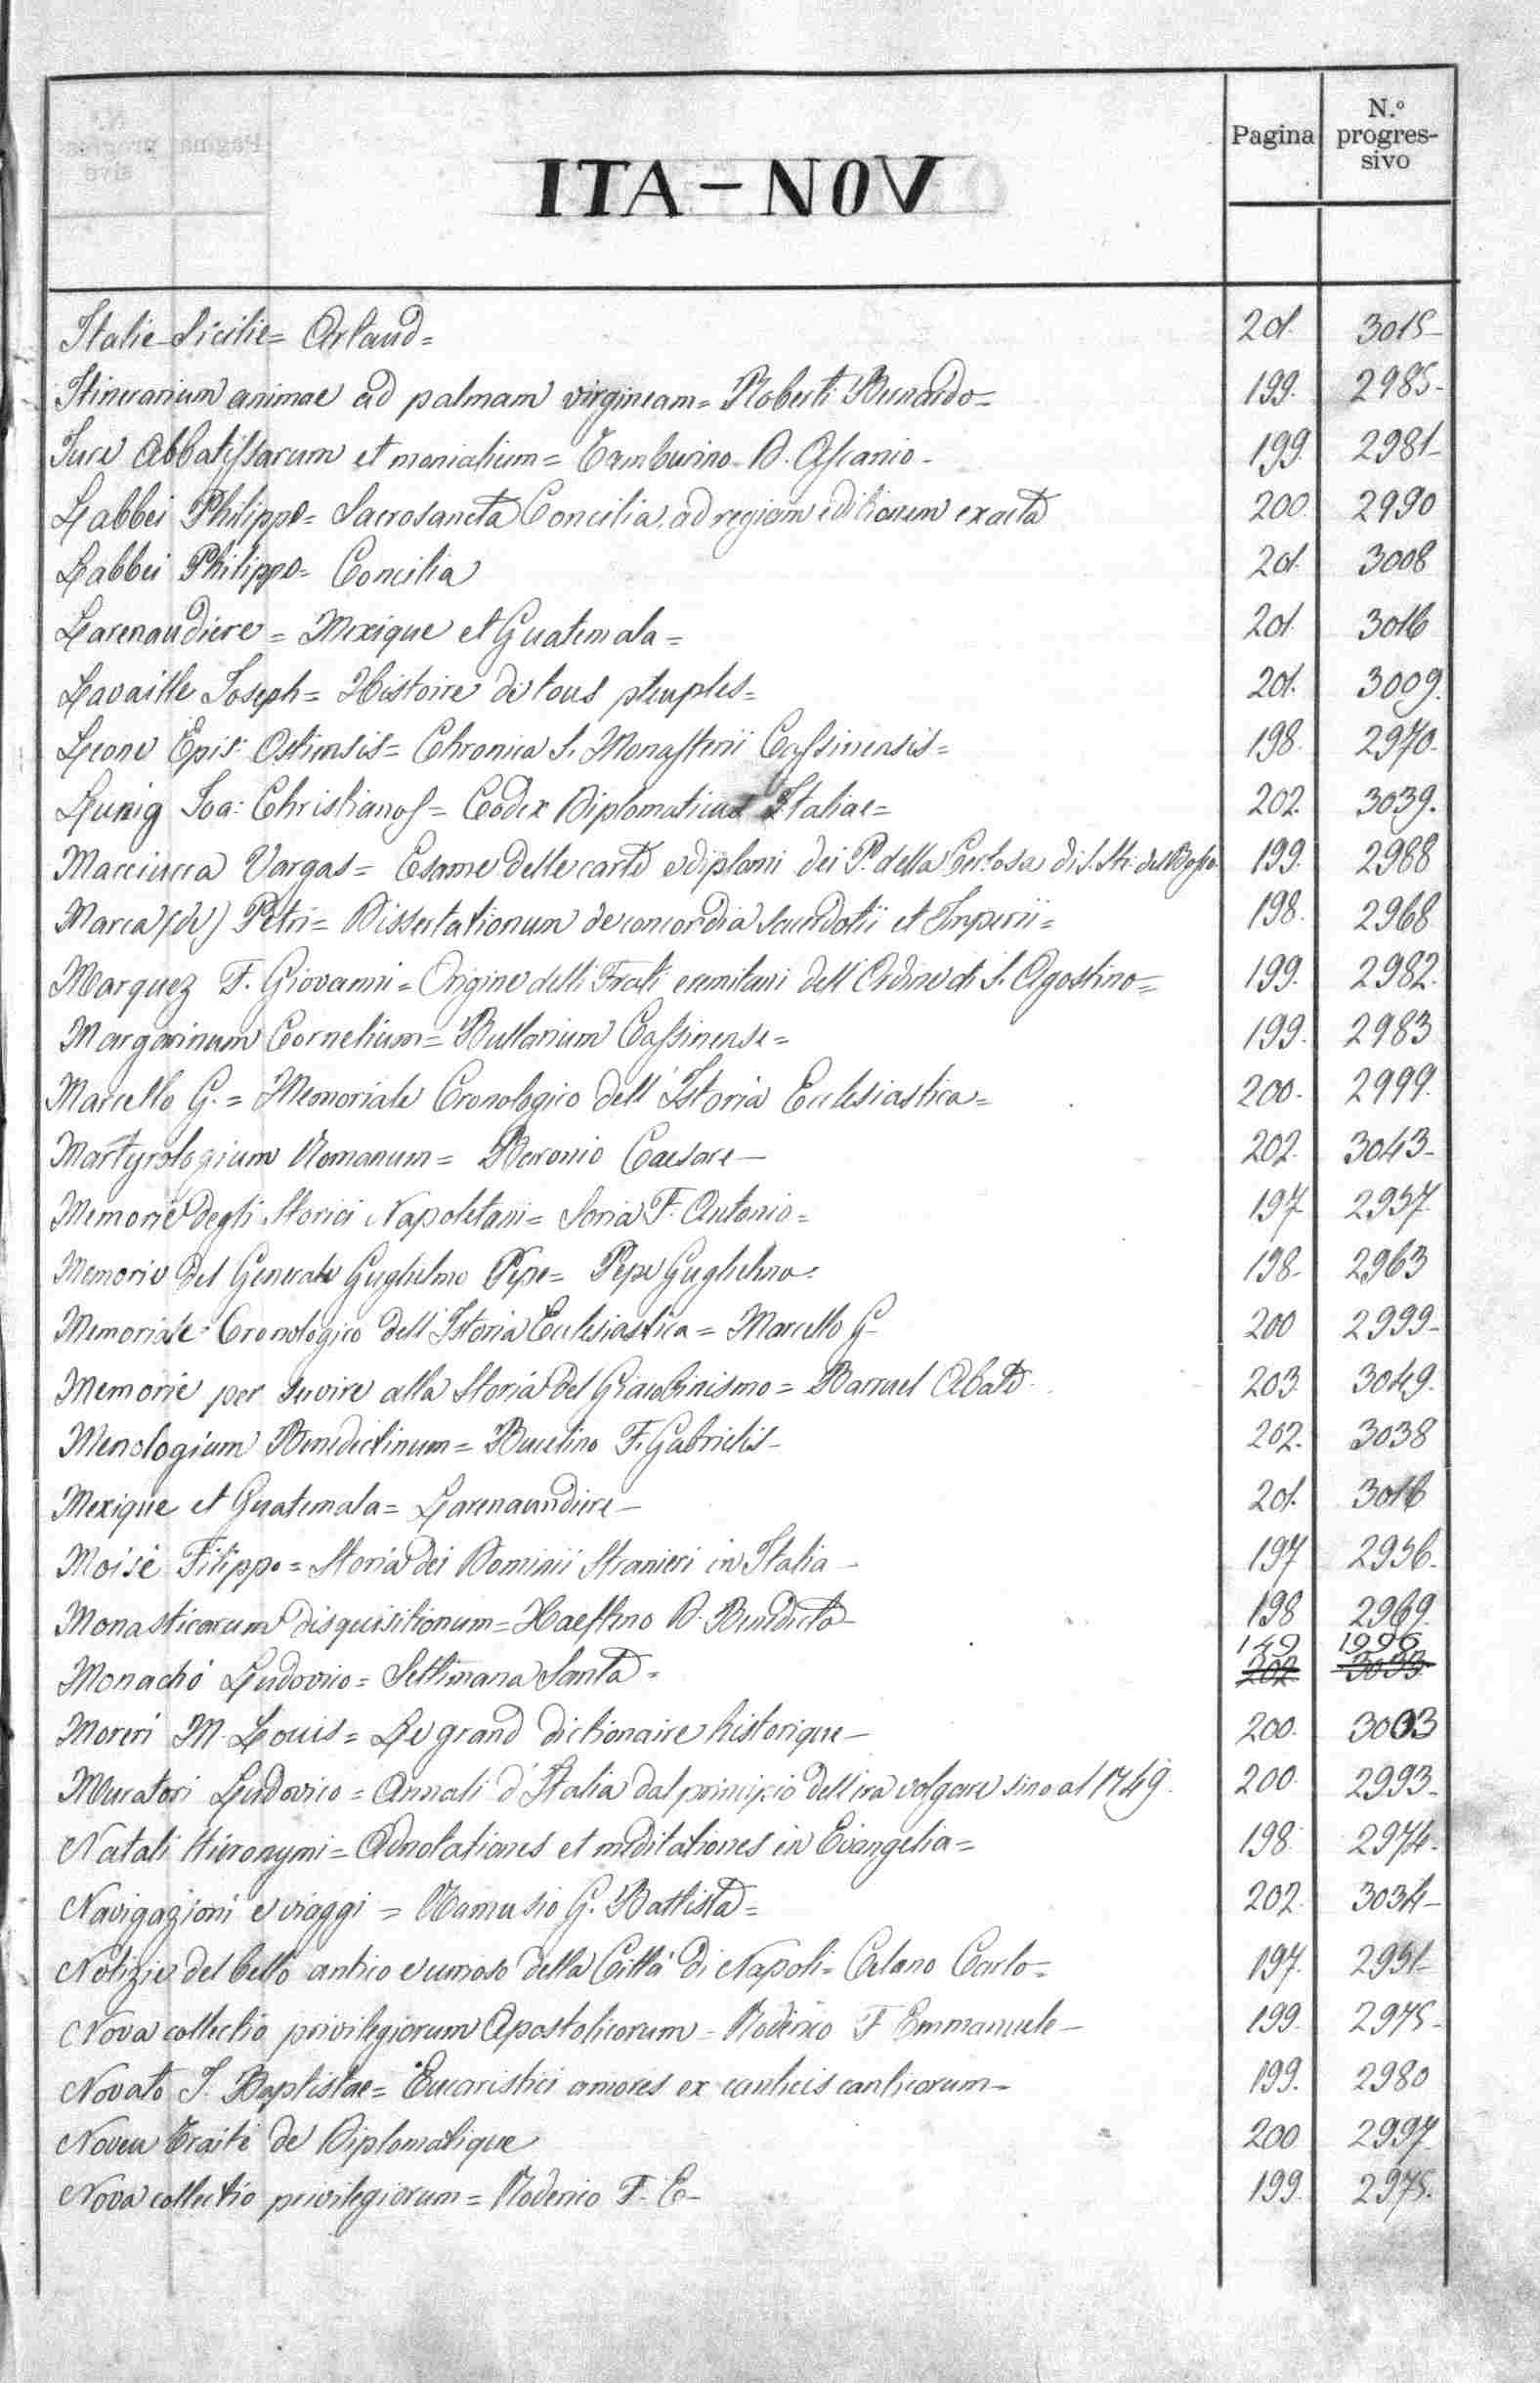 Pagina N.º progres-sivo
ITA - NOV
Italie-Sicilie= Orland= 201. 3015-
Itinerarium animae ad palmam virgineam= Roberti Bernardo= 199. 2985-
Jure Abbatissarum et monialium= Tamburino D. Ascanio- 199. 2981-
Labbei Philippo= Sacrosancta Concilia, ad regiam editionem exacta 200. 2990
Labbei Philippo= Concilia 201. 3008
Larenaudiere= Mexique et Guatemala= 201. 3016
Lavaille Joseph= Histoire de tous pleuples= 201. 3009.
Leone Epis: Ostiensis= Chronica S. Monasterii Cassinensis= 198. 2970.
Lunig Joa: Christianos= Codex Diplomaticus Italiae= 202. 3039.
Macciucca Vargas= Esame delle carte e diplomi dei P. della Certosa di S. Ste: del Bosco 199. 2988
Marca (de) Petri= Dissertationum de concordia Sacerdotii et Imperii= 198. 2968
Marquez F. Giovanni= Origine delli Frati eremitani dell'Ordine di S. Agostino= 199. 2982.
Margarinum Cornelium= Bullarium Cassinense= 199. 2983
Marcello G.= Memoriale Cronologico dell'Istoria Ecclesiastica= 200. 2999.
Martyrologium Romanum= Baronio Caesare- 202. 3043-
Memorie degli Storici Napoletani= Soria F. Antonio= 197 2957.
Memorie del Generale Guglielmo Pepe= Pepe Guglielmo= 198- 2963
Memoriale Cronologico dell'Istoria Ecclesiastica= Marcello G- 200 2999-
Memorie per servire alla Storia del Giacobinismo= Barruel Abate. 203. 3049.
Menologium Benedictinum= Bucelino F. Gabrielis- 202. 3038
Mexique et Guatemala= Larenaundiere- 201. 3016
Moisè Filippo= Storia dei Dominii Stranieri in Italia- 197 2956.
Monasticarum disquisitionum= Haefteno D. Benedicto- 198 2969.
149 1996
Monachó Ludovico= Settimana Santa= 202 3033
Moreri M. Louis= Le grand dictionaire historique- 200. 3003
Muratori Ludovico= Annali d'Italia dal principio dell'era volgare sino al 1749. 200. 2993-
Natali Hieronymi= Adnotationes et meditationes in Evangelia= 198. 2974.
Navigazioni e viaggi= Ramusio G. Battista= 202. 3034-
Notizie del bello antico e curioso della Città di Napoli= Celano Carlo= 197. 2951-
Nova collectio privilegiorum Apostolicorum= Roderico F Emmanuele- 199. 2975-
Novato J. Baptistae= Eucaristici amores ex canticis canticorum- 199. 2980
Noveu Traité de Diplomatique 200 2997
Nova collectio privilegiorum= Roderico F. E- 199. 2975.